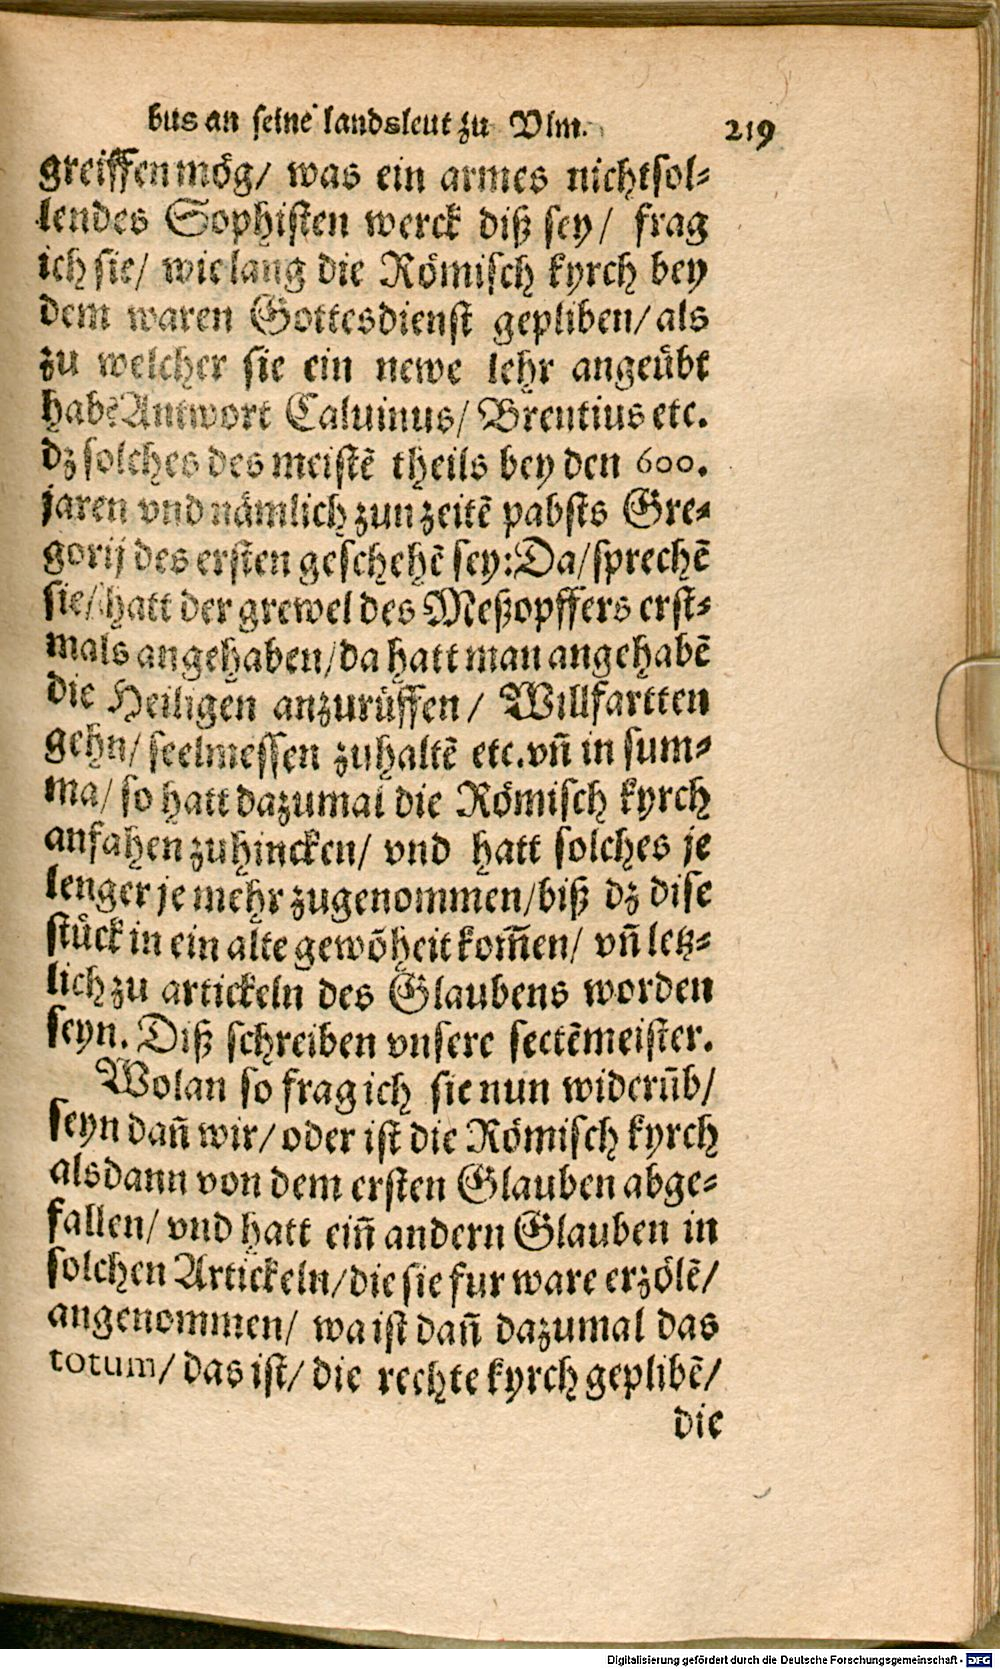 bus an seine landsleut zu Vlm. 219
greiffen mög/ was ein armes nichtsol⸗
lendes Sophisten werck diß sey/ frag
ich sie/ wie lang die Römisch kyrch bey
dem waren Gottesdienst gepliben/ als
zu welcher sie ein newe lehr angeübt
habe Antwort Caluinus/ Brentius etc.
dz solches des meistē theils bey den 600.
jaren vnd nämlich zun zeitē pabsts Gre⸗
gorij des ersten geschehē sey: Da/ sprechē
sie/ hatt der grewel des Meßopffers erst⸗
mals angehaben/ da hatt man angehabē
die Heiligen anzurüffen/ Willfartten
gehn/ seelmessen zuhaltē etc. vñ in sum⸗
ma/ so hatt dazumal die Römisch kyrch
anfahen zuhincken/ vnd hatt solches je
lenger je mehr zugenommen/ biß dz dise
stück in ein alte gewōheit kom̄en/ vñ letz⸗
lich zu artickeln des Glaubens worden
seyn. Diß schreiben vnsere sectēmeister.
Wolan so frag ich sie nun widerūb/
seyn dañ wir/ oder ist die Römisch kyrch
alsdann von dem ersten Glauben abge⸗
fallen/ vnd hatt eiñ andern Glauben in
solchen Artickeln/ die sie fur ware erzölē/
angenommen/ wa ist dañ dazumal das
totum/ das ist/ die rechte kyrch geplibē/
die
Digitalisierung gefördert durch die Deutsche Forschungsgemeinschaft - DFG